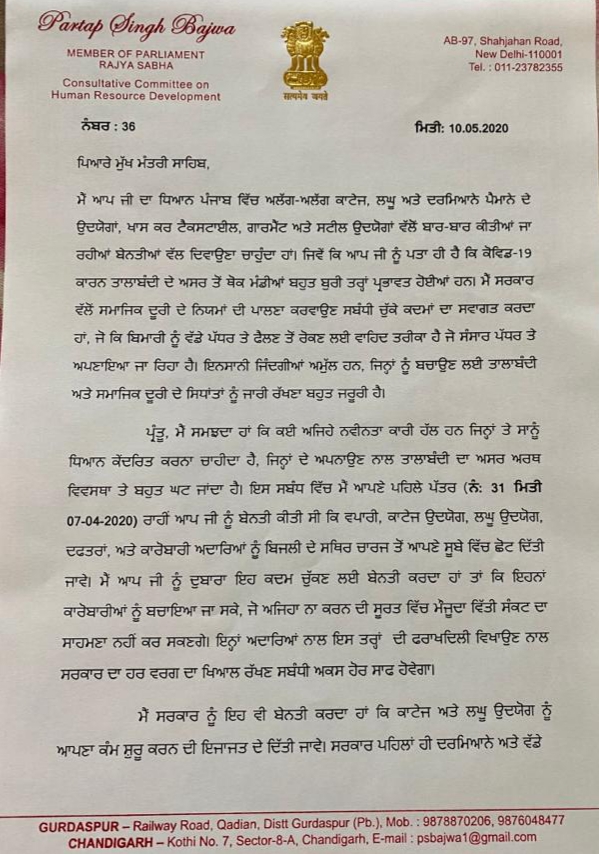 Partap Singh Bajwa
MEMBER OF PARLIAMENT
RAJYA SABHA
Consultative Committee on
Human Resource Development
सत्यमेव जयते
AB-97, Shahjahan Road,
New Delhi-110001
Tel. : 011-23782355
ਨੰਬਰ : 36
ਮਿਤੀ: 10.05.2020
ਪਿਆਰੇ ਮੁੱਖ ਮੰਤਰੀ ਸਾਹਿਬ,
ਮੈਂ ਆਪ ਜੀ ਦਾ ਧਿਆਨ ਪੰਜਾਬ ਵਿੱਚ ਅਲੱਗ-ਅਲੱਗ ਕਾਟੇਜ, ਲਘੂ ਅਤੇ ਦਰਮਿਆਨੇ ਪੈਮਾਨੇ ਦੇ
ਉਦਯੋਗਾਂ, ਖਾਸ ਕਰ ਟੈਕਸਟਾਈਲ, ਗਾਰਮੈਂਟ ਅਤੇ ਸਟੀਲ ਉਦਯੋਗਾਂ ਵੱਲੋਂ ਬਾਰ-ਬਾਰ ਕੀਤੀਆਂ ਜਾ
ਰਹੀਆਂ ਬੇਨਤੀਆਂ ਵੱਲ ਦਿਵਾਉਣਾ ਚਾਹੁੰਦਾ ਹਾਂ। ਜਿਵੇਂ ਕਿ ਆਪ ਜੀ ਨੂੰ ਪਤਾ ਹੀ ਹੈ ਕਿ ਕੋਵਿਡ-19
ਕਾਰਨ ਤਾਲਾਬੰਦੀ ਦੇ ਅਸਰ ਤੋਂ ਥੋਕ ਮੰਡੀਆਂ ਬਹੁਤ ਬੁਰੀ ਤਰ੍ਹਾਂ ਪ੍ਰਭਾਵਤ ਹੋਈਆਂ ਹਨ। ਮੈਂ ਸਰਕਾਰ
ਵੱਲੋਂ ਸਮਾਜਿਕ ਦੂਰੀ ਦੇ ਨਿਯਮਾਂ ਦੀ ਪਾਲਣਾ ਕਰਵਾਉਣ ਸਬੰਧੀ ਚੁੱਕੇ ਕਦਮਾਂ ਦਾ ਸਵਾਗਤ ਕਰਦਾ
ਹਾਂ, ਜੋ ਕਿ ਬਿਮਾਰੀ ਨੂੰ ਵੱਡੇ ਪੱਧਰ ਤੇ ਫੈਲਣ ਤੋਂ ਰੋਕਣ ਲਈ ਵਾਹਿਦ ਤਰੀਕਾ ਹੈ ਜੋ ਸੰਸਾਰ ਪੱਧਰ ਤੇ
ਅਪਣਾਇਆ ਜਾ ਰਿਹਾ ਹੈ। ਇਨਸਾਨੀ ਜਿੰਦਗੀਆਂ ਅਮੁੱਲ ਹਨ, ਜਿਨ੍ਹਾਂ ਨੂੰ ਬਚਾਉਣ ਲਈ ਤਾਲਾਬੰਦੀ
ਅਤੇ ਸਮਾਜਿਕ ਦੂਰੀ ਦੇ ਸਿਧਾਂਤਾਂ ਨੂੰ ਜਾਰੀ ਰੱਖਣਾ ਬਹੁਤ ਜਰੂਰੀ ਹੈ।
ਪ੍ਰੰਤੂ, ਮੈਂ ਸਮਝਦਾ ਹਾਂ ਕਿ ਕਈ ਅਜਿਹੇ ਨਵੀਨਤਾ ਕਾਰੀ ਹੱਲ ਹਨ ਜਿਨ੍ਹਾਂ ਤੇ ਸਾਨੂੰ
ਧਿਆਨ ਕੇਂਦਰਿਤ ਕਰਨਾ ਚਾਹੀਦਾ ਹੈ, ਜਿਨ੍ਹਾਂ ਦੇ ਅਪਨਾਉਣ ਨਾਲ ਤਾਲਾਬੰਦੀ ਦਾ ਅਸਰ ਅਰਥ
ਵਿਵਸਥਾ ਤੇ ਬਹੁਤ ਘਟ ਜਾਂਦਾ ਹੈ। ਇਸ ਸਬੰਧ ਵਿੱਚ ਮੈਂ ਆਪਣੇ ਪਹਿਲੇ ਪੱਤਰ (ਨੰ: 31 ਮਿਤੀ
07-04-2020) ਰਾਹੀਂ ਆਪ ਜੀ ਨੂੰ ਬੇਨਤੀ ਕੀਤੀ ਸੀ ਕਿ ਵਪਾਰੀ, ਕਾਟੇਜ ਉਦਯੋਗ, ਲਘੂ ਉਦਯੋਗ,
ਦਫਤਰਾਂ, ਅਤੇ ਕਾਰੋਬਾਰੀ ਅਦਾਰਿਆਂ ਨੂੰ ਬਿਜਲੀ ਦੇ ਸਥਿਰ ਚਾਰਜ ਤੋਂ ਆਪਣੇ ਸੂਬੇ ਵਿੱਚ ਛੋਟ ਦਿੱਤੀ
ਜਾਵੇ। ਮੈਂ ਆਪ ਜੀ ਨੂੰ ਦੁਬਾਰਾ ਇਹ ਕਦਮ ਚੁੱਕਣ ਲਈ ਬੇਨਤੀ ਕਰਦਾ ਹਾਂ ਤਾਂ ਕਿ ਇਹਨਾਂ
ਕਾਰੋਬਾਰੀਆਂ ਨੂੰ ਬਚਾਇਆ ਜਾ ਸਕੇ, ਜੋ ਅਜਿਹਾ ਨਾ ਕਰਨ ਦੀ ਸੂਰਤ ਵਿੱਚ ਮੌਜੂਦਾ ਵਿੱਤੀ ਸੰਕਟ ਦਾ
ਸਾਹਮਣਾ ਨਹੀਂ ਕਰ ਸਕਣਗੇ। ਇਨ੍ਹਾਂ ਅਦਾਰਿਆਂ ਨਾਲ ਇਸ ਤਰ੍ਹਾਂ ਦੀ ਫਰਾਖਦਿਲੀ ਵਿਖਾਉਣ ਨਾਲ
ਸਰਕਾਰ ਦਾ ਹਰ ਵਰਗ ਦਾ ਖਿਆਲ ਰੱਖਣ ਸਬੰਧੀ ਅਕਸ ਹੋਰ ਸਾਫ ਹੋਵੇਗਾ।
ਮੈਂ ਸਰਕਾਰ ਨੂੰ ਇਹ ਵੀ ਬੇਨਤੀ ਕਰਦਾ ਹਾਂ ਕਿ ਕਾਟੇਜ ਅਤੇ ਲਘੂ ਉਦਯੋਗ ਨੂੰ
ਆਪਣਾ ਕੰਮ ਸ਼ੁਰੂ ਕਰਨ ਦੀ ਇਜਾਜਤ ਦੇ ਦਿੱਤੀ ਜਾਵੇ। ਸਰਕਾਰ ਪਹਿਲਾਂ ਹੀ ਦਰਮਿਆਨੇ ਅਤੇ ਵੱਡੇ
GURDASPUR – Railway Road, Qadian, Distt Gurdaspur (Pb.), Mob. : 9878870206, 9876048477
CHANDIGARH – Kothi No. 7, Sector-8-A, Chandigarh, E-mail : psbajwa1@gmail.com